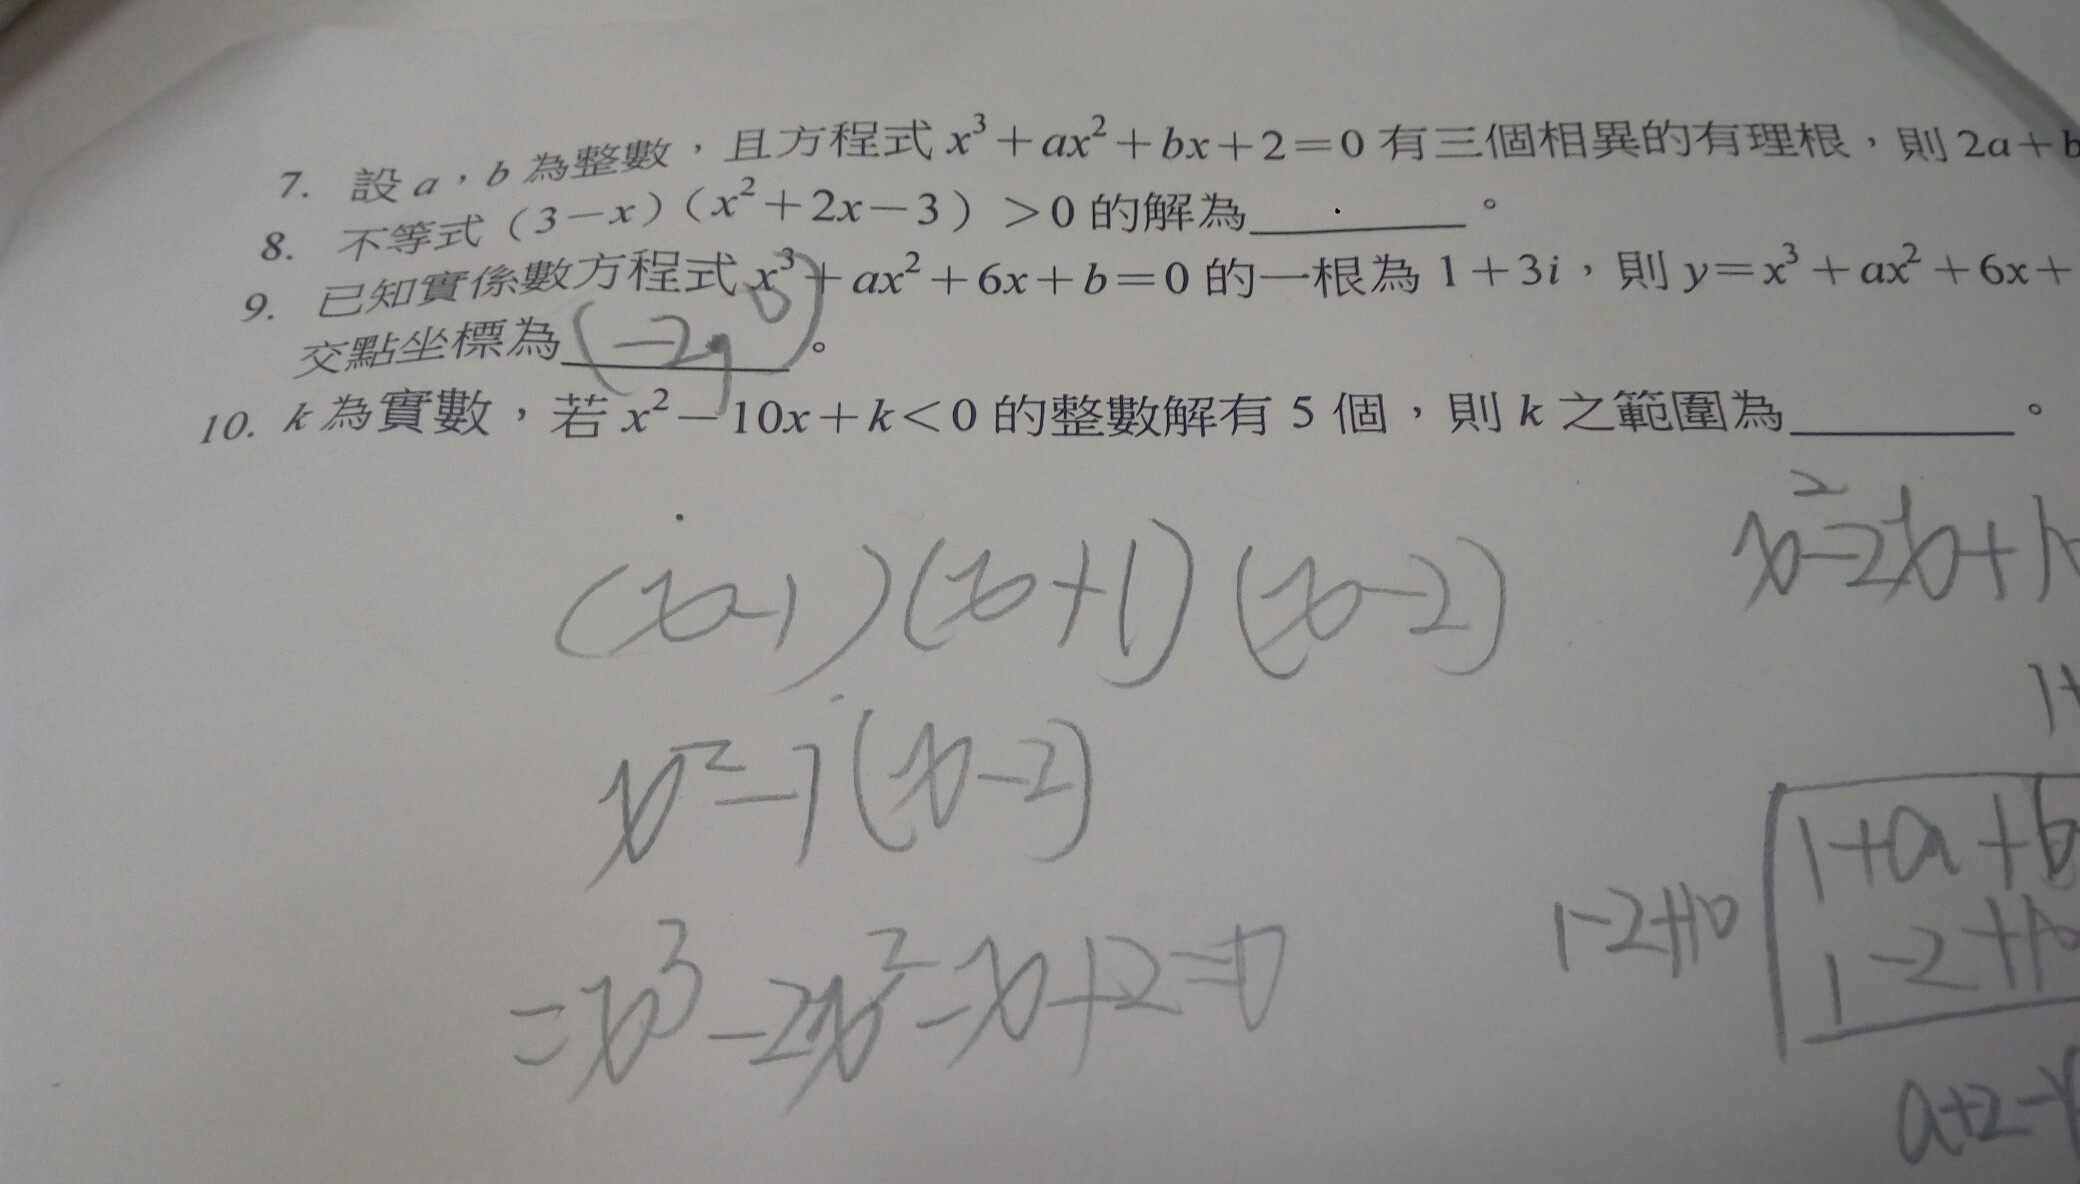 7. 設 a，b 為整數，且方程式 x³+ax²+bx+2=0 有三個相異的有理根，則 2a+b
8. 不等式（3－x）（x²+2x－3）>0 的解為________。
9. 已知實係數方程式 x³+ax²+6x+b=0 的一根為 1+3i，則 y=x³+ax²+6x+
交點坐標為(-2,0)。
10. k 為實數，若 x²－10x+k<0 的整數解有 5 個，則 k 之範圍為________。
(x-1)(x+1)(x-2)
x²-1(x-2)
=x³-2x²-x+2=0
x²-2x+1
1+
1+a+b
1-2+10
1-2+10
a+2